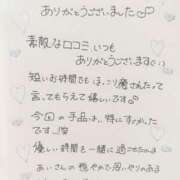 ありがとうございました♡
素敵な口コミいつも
ありがとうございます
短いお時間でも ほっこり癒されたって
言ってもらえて嬉しいです
今回の手品は、特にすごかった
です
優しい時間も一緒に過ごされた
あいさんの穏やかで思いやりのある